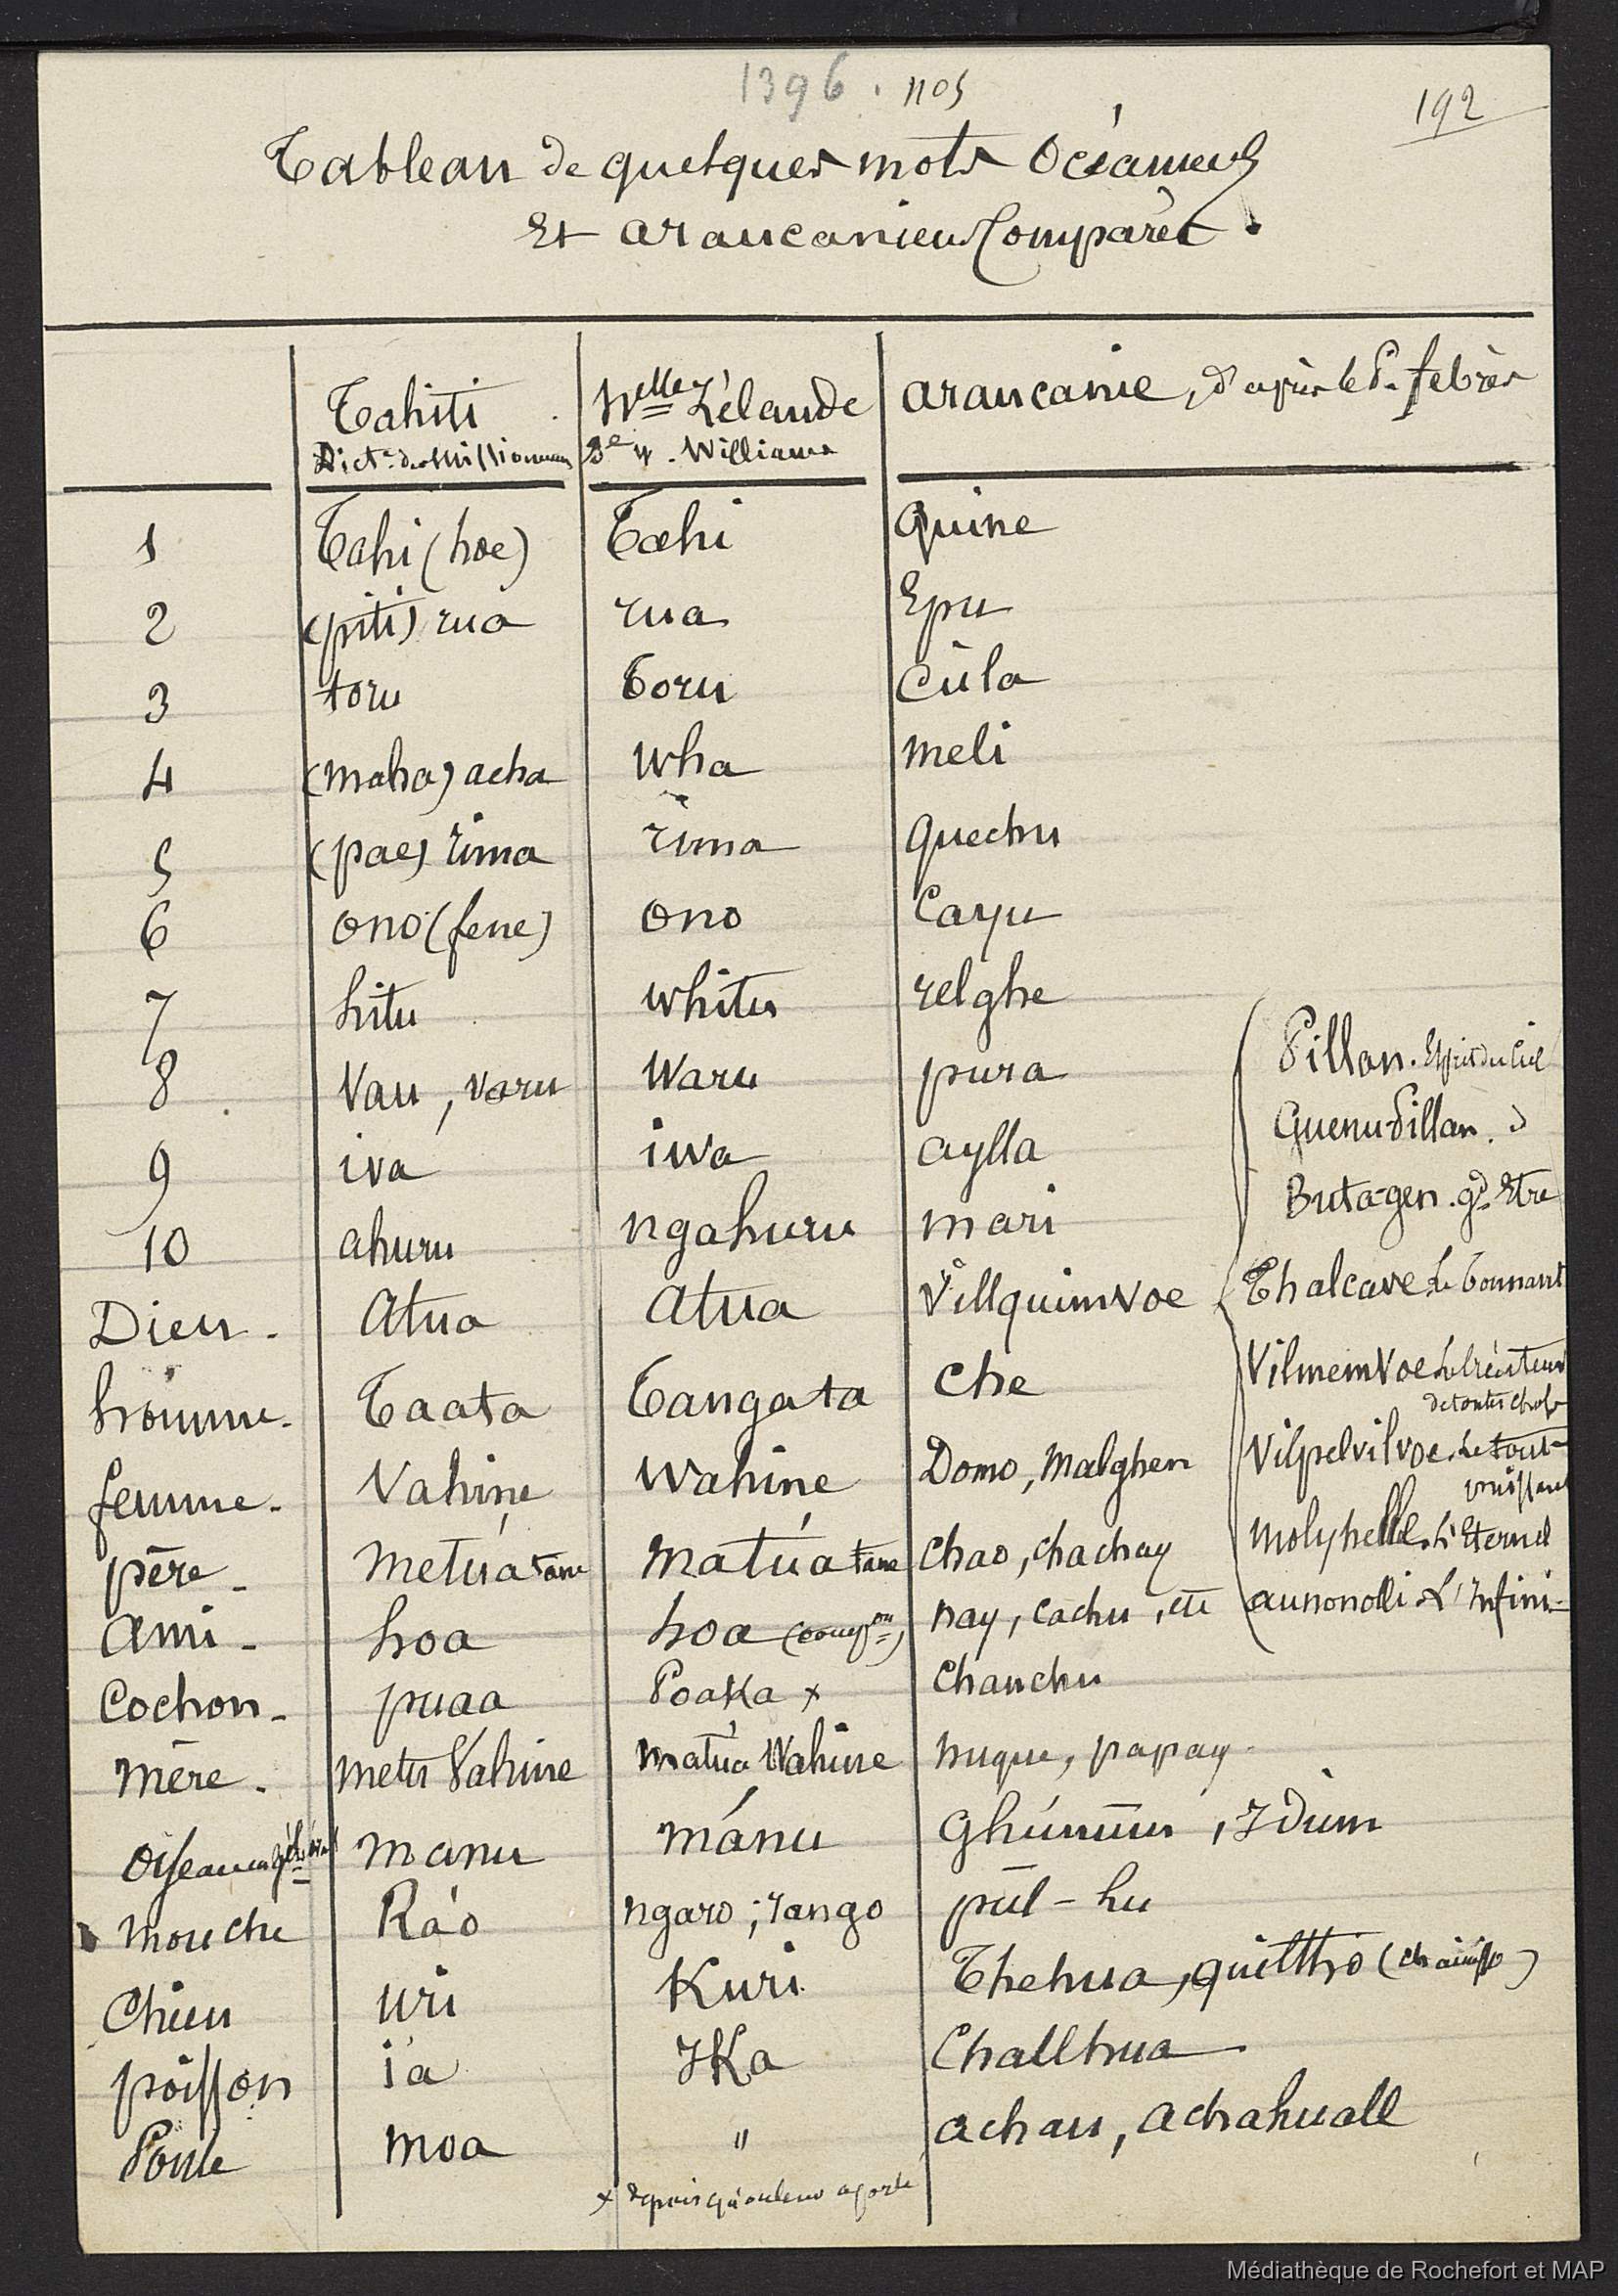 1396. 1105
192
Tableau de quelques mots Océaniens
Et araucaniens Comparés.
Tahiti Nelle Zélande araucanie, d'après le P. febrès
Dictre des Missionnaires Bd W. Williams
1 Tahi (hoe) Tahi Quine
2 (piti) rua rua Epu
3 toru Toru Cùla
4 (maha) acha wha meli
5 (pae) rima rima Quechu
6 ono (fene) ono Cayu
7 hitu whitu relghe
8 Vau, varu Waru pura
Pillan. Esprit du Ciel
9 iva iwa aylla
Guenu-Pillan. d
10 ahuru ngahuru mari
Buta-gen. gd Etre
Dieu - Atua Atua Villquimvoe
Thalcave Le tonnant
homme - Taata Tangata Che
Vilmemvoe Le Créateur
de toutes choses
femme - Vahine Wahine Domo, Malghen
Vilpelvilvoe. Le tout-
puissant
père - Metúa tane Matúa tane Chao, chachay
Molphelle L'Eternel
Ami - hoa hoa (compon) nay, cachu, etc
aunonolli L'Infini -
Cochon - puaa Poaka x Chanchu
Mère - metu Vahine matúa Wahine nuque, papay -
Oiseau en général manu mánu Ghúnúm, Idum
mouche Ráo ngaro; rango púl-hu
Chien uri Kuri Thehua, quiltho
poisson ia IKa Challhua
Poule moa " achau, achahuall
x depuis qu'on leur a porté
Médiathèque de Rochefort et MAP